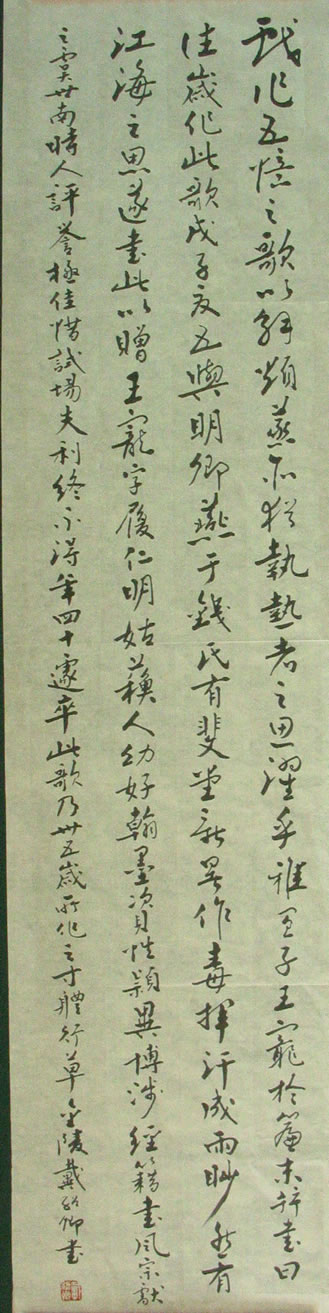 戏作五憶之歌以解煩燕亦犹執熱者之思濯乎雅宜子王寵於簾末辞書曰
往歲作此歌戊子夏五與明卿燕于錢氏有斐堂新暑作毒揮汗成雨眇然有
江海之思遂書此以贈王寵字履仁明姑蘇人幼好翰墨資性穎異博涉經籍書風宗獻
之虞世南時人評譽極佳惜試場失利終不得年四十遽卒此歌乃卅五歲所作之寸體行草金陵戴卿書